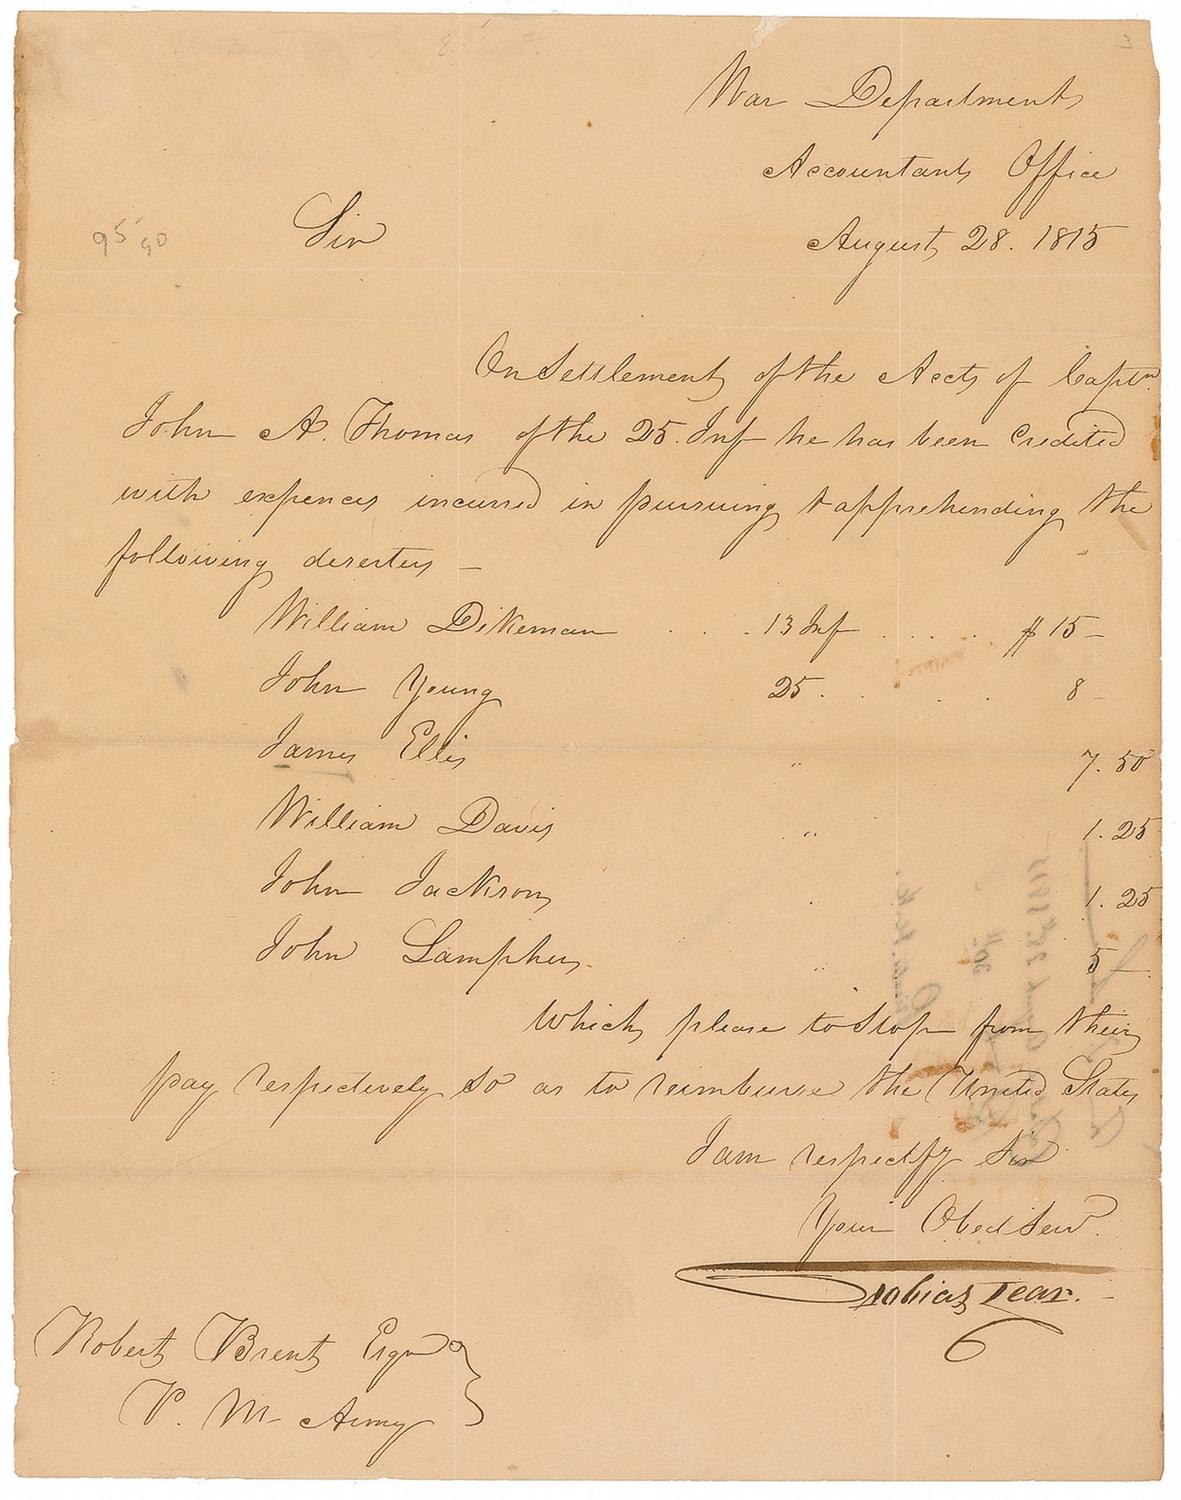 War Department
Accountants Office
August 28. 1815
Sir
On Settlement of the Accts of Captn.
John A. Thomas of the 25. Inf he has been Credited
with expences incurred in pursuing & apprehending the
following deserters —
William Dikeman . . . 13 Inf . . . . $ 15 —
John Young 25 . . . . 8 —
James Ellis " 7. 50
William Davis " 1. 25
John Jackson . 1. 25
John Lampher " 5 —
Which please to Stop from their
pay respectively so as to reimburse the United States
I am respectfy Sir
Your Obed Serv.
Tobias Lear.
Robert Brent Esqr
P. M Army